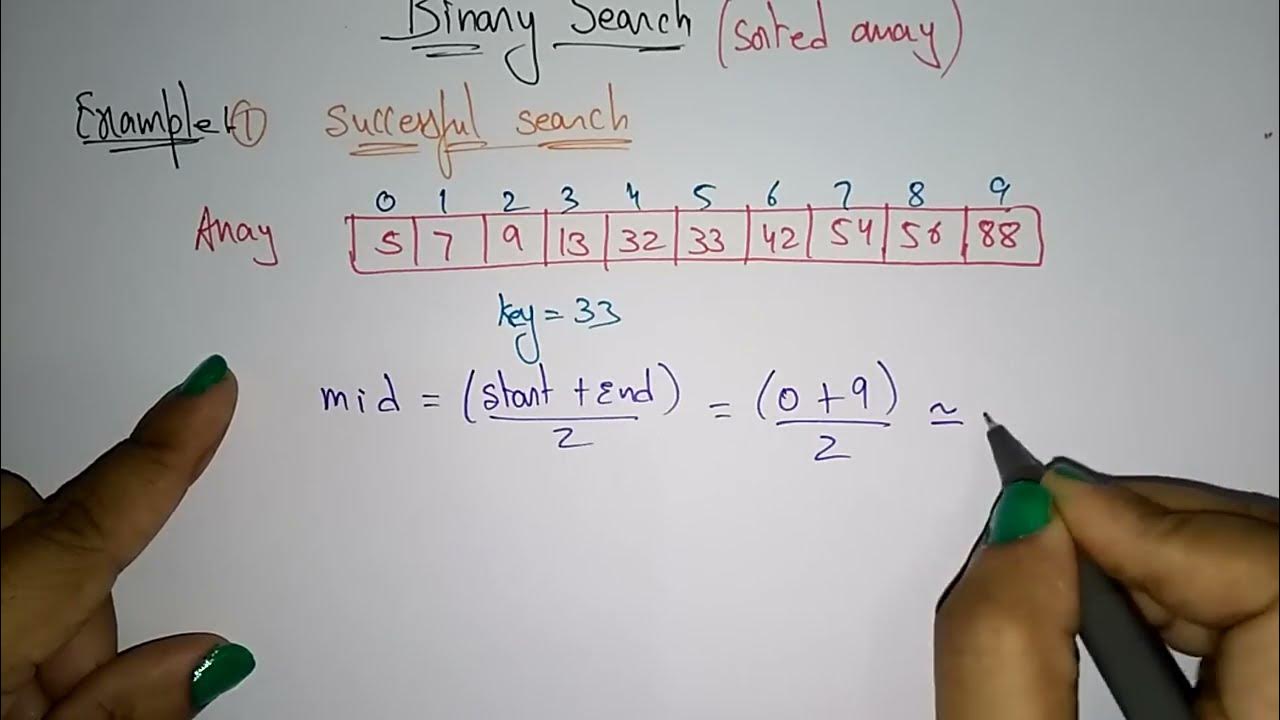 Binary Search (Sorted array)
Example:- ① Successful search
0 1 2 3 4 5 6 7 8 9
Array 5 7 9 13 32 33 42 54 56 88
key = 33
mid = (start + End) / 2 = (0 + 9) / 2 ≃